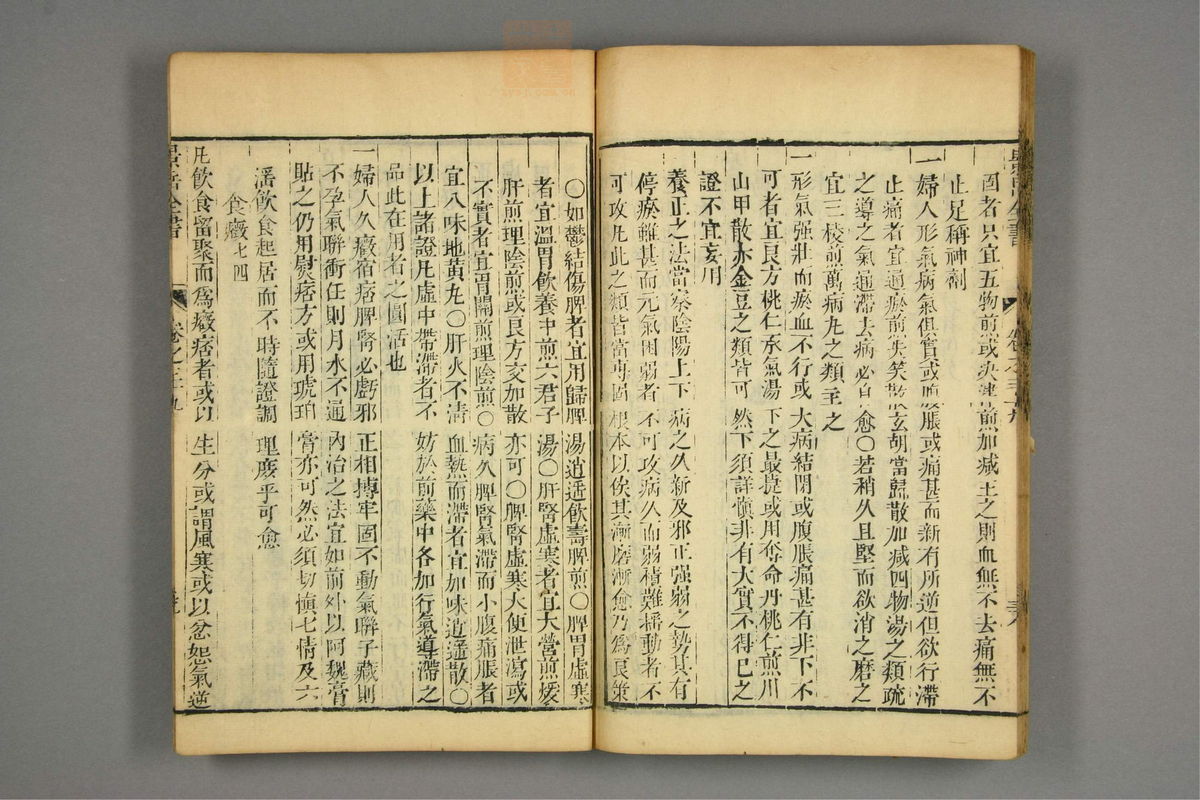 固者只宜五物煎或決津煎加減主之則血無不去痛無不
止足稱神劑
一婦人形氣病氣俱實或腹脹或痛甚而新有所逆但欲行滯
止痛者宜通瘀煎失笑散玄胡當歸散加減四物湯之類疏
之導之氣通滯去病必自愈○若稍久且堅而欲消之磨之
宜三稜煎萬病丸之類主之
一形氣强壯而瘀血不行或大病結閉或腹脹痛甚有非下不
可者宜良方桃仁承氣湯下之最捷或用奪命丹桃仁煎川
山甲散亦金豆之類皆可然下須詳愼非有大實不得已之
證不宜妄用
養正之法當察陰陽上下病之久新及邪正强弱之勢其有
停瘀雖甚而元氣困弱者不可攻病久而弱積難摇動者不
可攻凡此之類皆當專固根本以俟其漸磨漸愈乃爲良策
景岳全書
卷之三十九
○如鬱結傷脾者宜用歸脾湯逍遥飲壽脾煎○脾胃虛寒
者宜溫胃飲養中煎六君子湯○肝腎虛寒者宜大營煎煖
肝煎理陰煎或良方交加散亦可○脾腎虛寒大便泄瀉或
不實者宜胃關煎理陰煎○病久脾腎氣滯而小腹痛脹者
宜八味地黃丸○肝火不清血熱而滯者宜加味逍遥散○
以上諸證凡虛中帶滯者不妨於前藥中各加行氣導滯之
品此在用者之圓活也
一婦人久癥宿痞脾腎必虧邪正相搏牢固不動氣聯子藏則
不孕氣聯衝任則月水不通內治之法宜如前外以阿魏膏
貼之仍用熨痞方或用琥珀膏亦可然必須切愼七情及六
淫飲食起居而不時隨證調理庶乎可愈
食癥七四
凡飲食留聚而爲癥痞者或以生分或謂風寒或以忿怒氣逆
景岳全書
卷之三十九